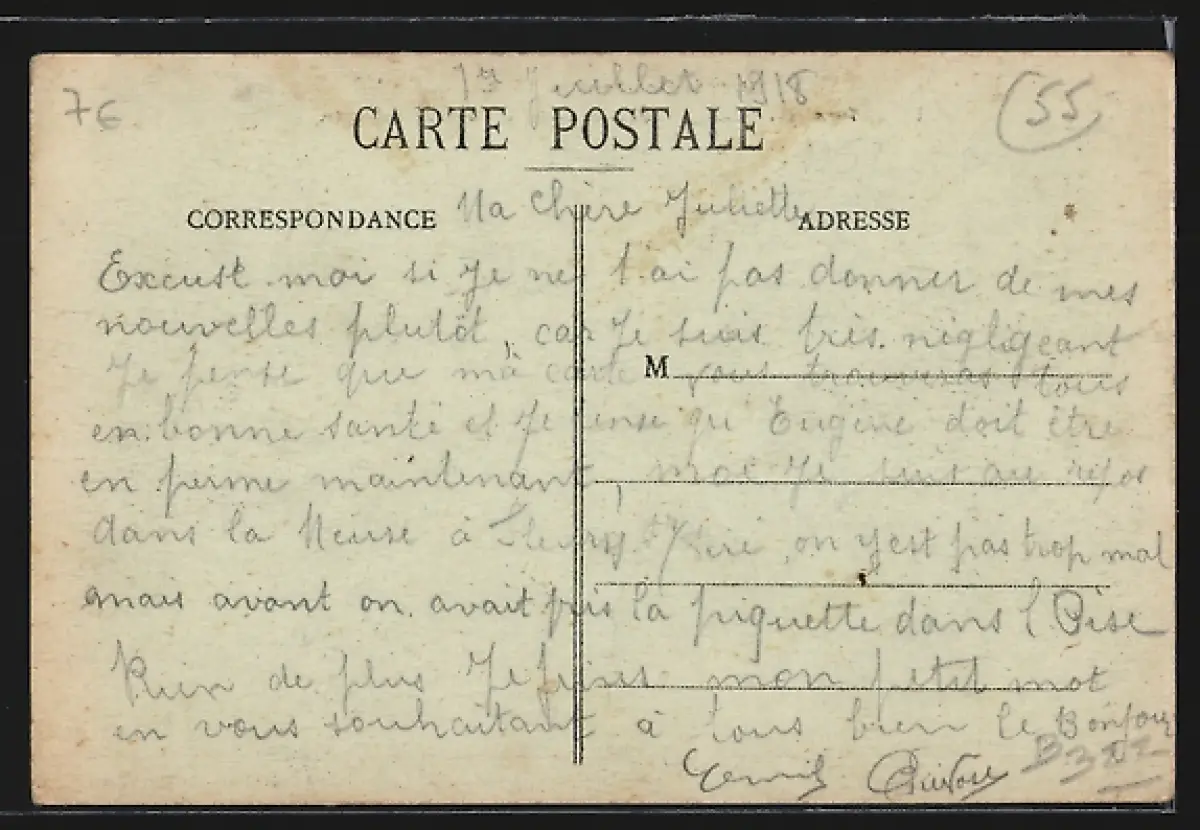 76
17 Juillet 1918
55
CARTE POSTALE
CORRESPONDANCE
ADRESSE
Ma chère Juliette
Excuse moi si Je ne t'ai pas donner de mes
nouvelles plutôt, car Je suis très négligeant
M
Je pense que ma carte vous trouveras tous
en bonne santé et Je pense qu' Eugène doit être
en perme maintenant, moi Je suis au repos
dans la Meuse à on y est pas trop mal
mais avant on avait pris la piquette dans l'Oise
Rien de plus Je finis mon petit mot
en vous souhaitant à tous bien le Bonjour